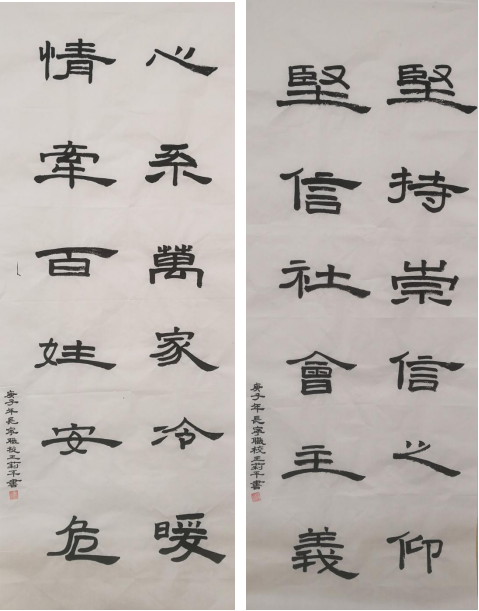 堅持崇信之仰
堅信社會主義
庚子年長寧職校王莉書
心系萬家冷暖
情牽百姓安危
庚子年長寧職校王莉書